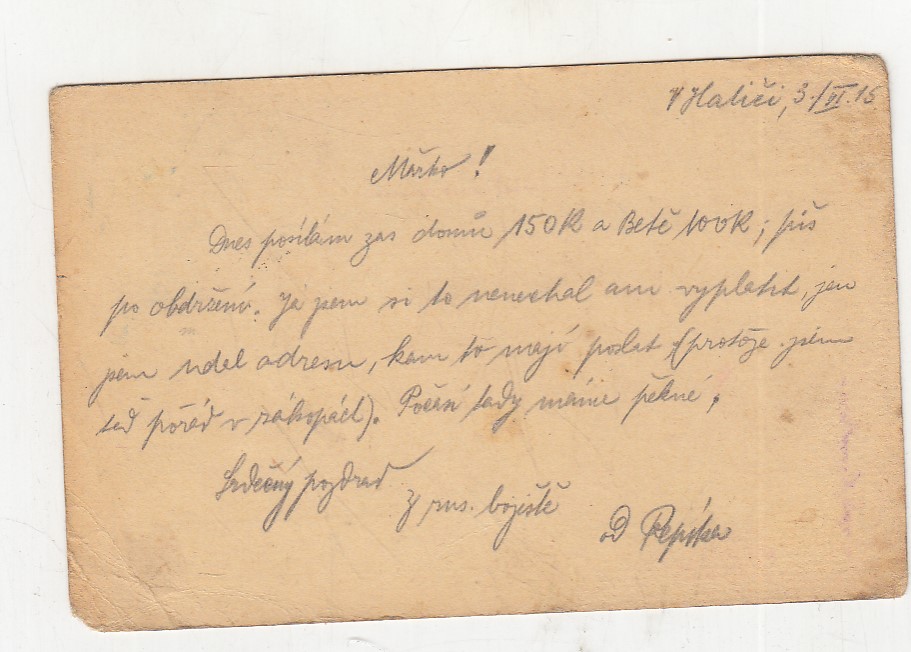 V Haliči, 3./VI. 15
Mařko!
Dnes posílám zas domů 150K a Betě 100K; piš
po obdržení. Já jsem si to nenechal ani vyplatit, jen
jsem udal adresu, kam to mají poslat (protože jsem
teď pořád v zákopách). Počasí tady máme pěkné.
Srdečný pozdrav
z rus. bojiště
od Pepíka